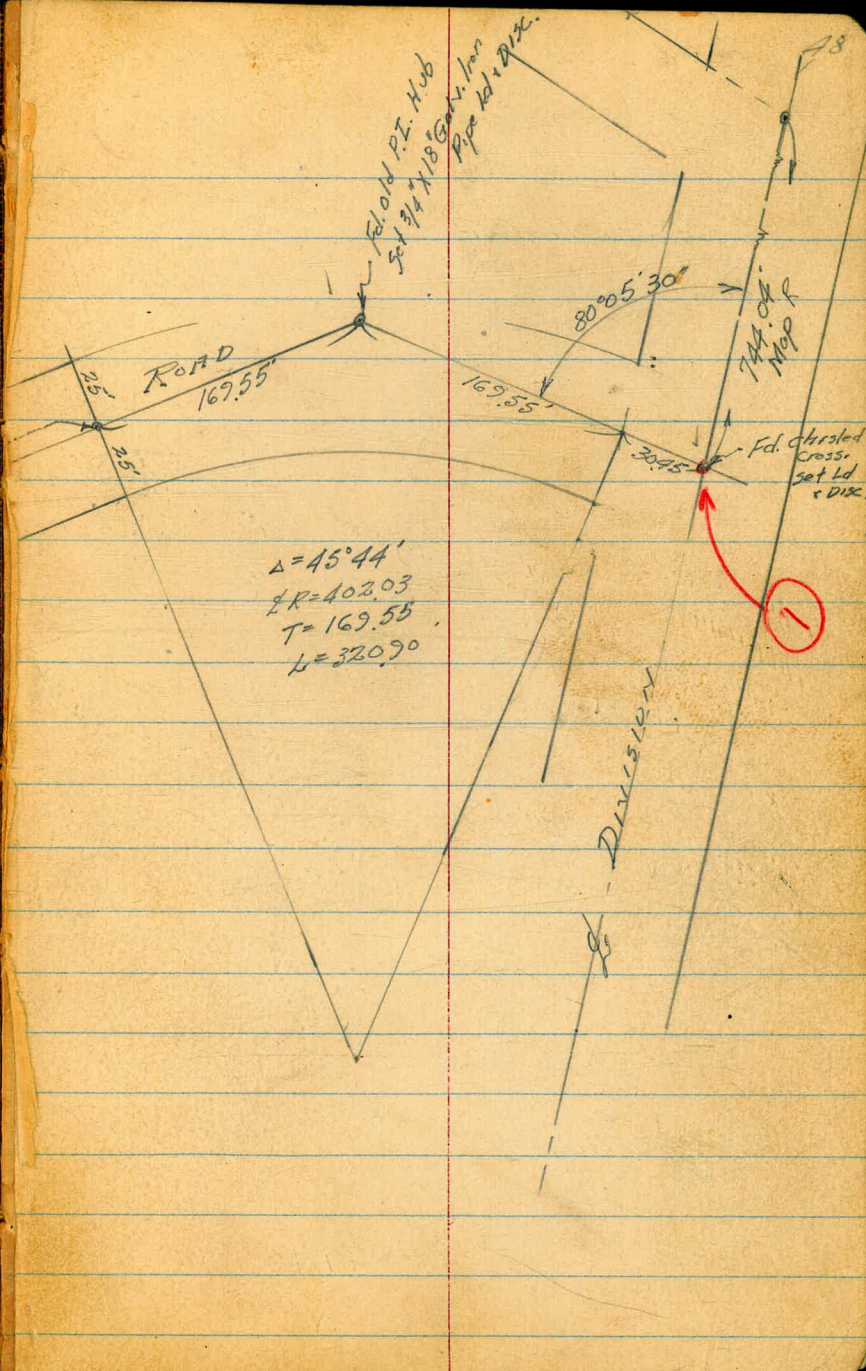 48
Fd. old P.I. Hub
Set 3/4" X 18" Galv. Iron
Pipe Ld & Disc.
80°05'30"
744.04'
Map R
ROAD
169.55'
25'
25'
169.55'
30.45
Fd. Chisled
Cross.
Set Ld
& Disc
1
Δ=45°44'
℄ R=402.03
T=169.55
L=320.90
DIVISION
℄